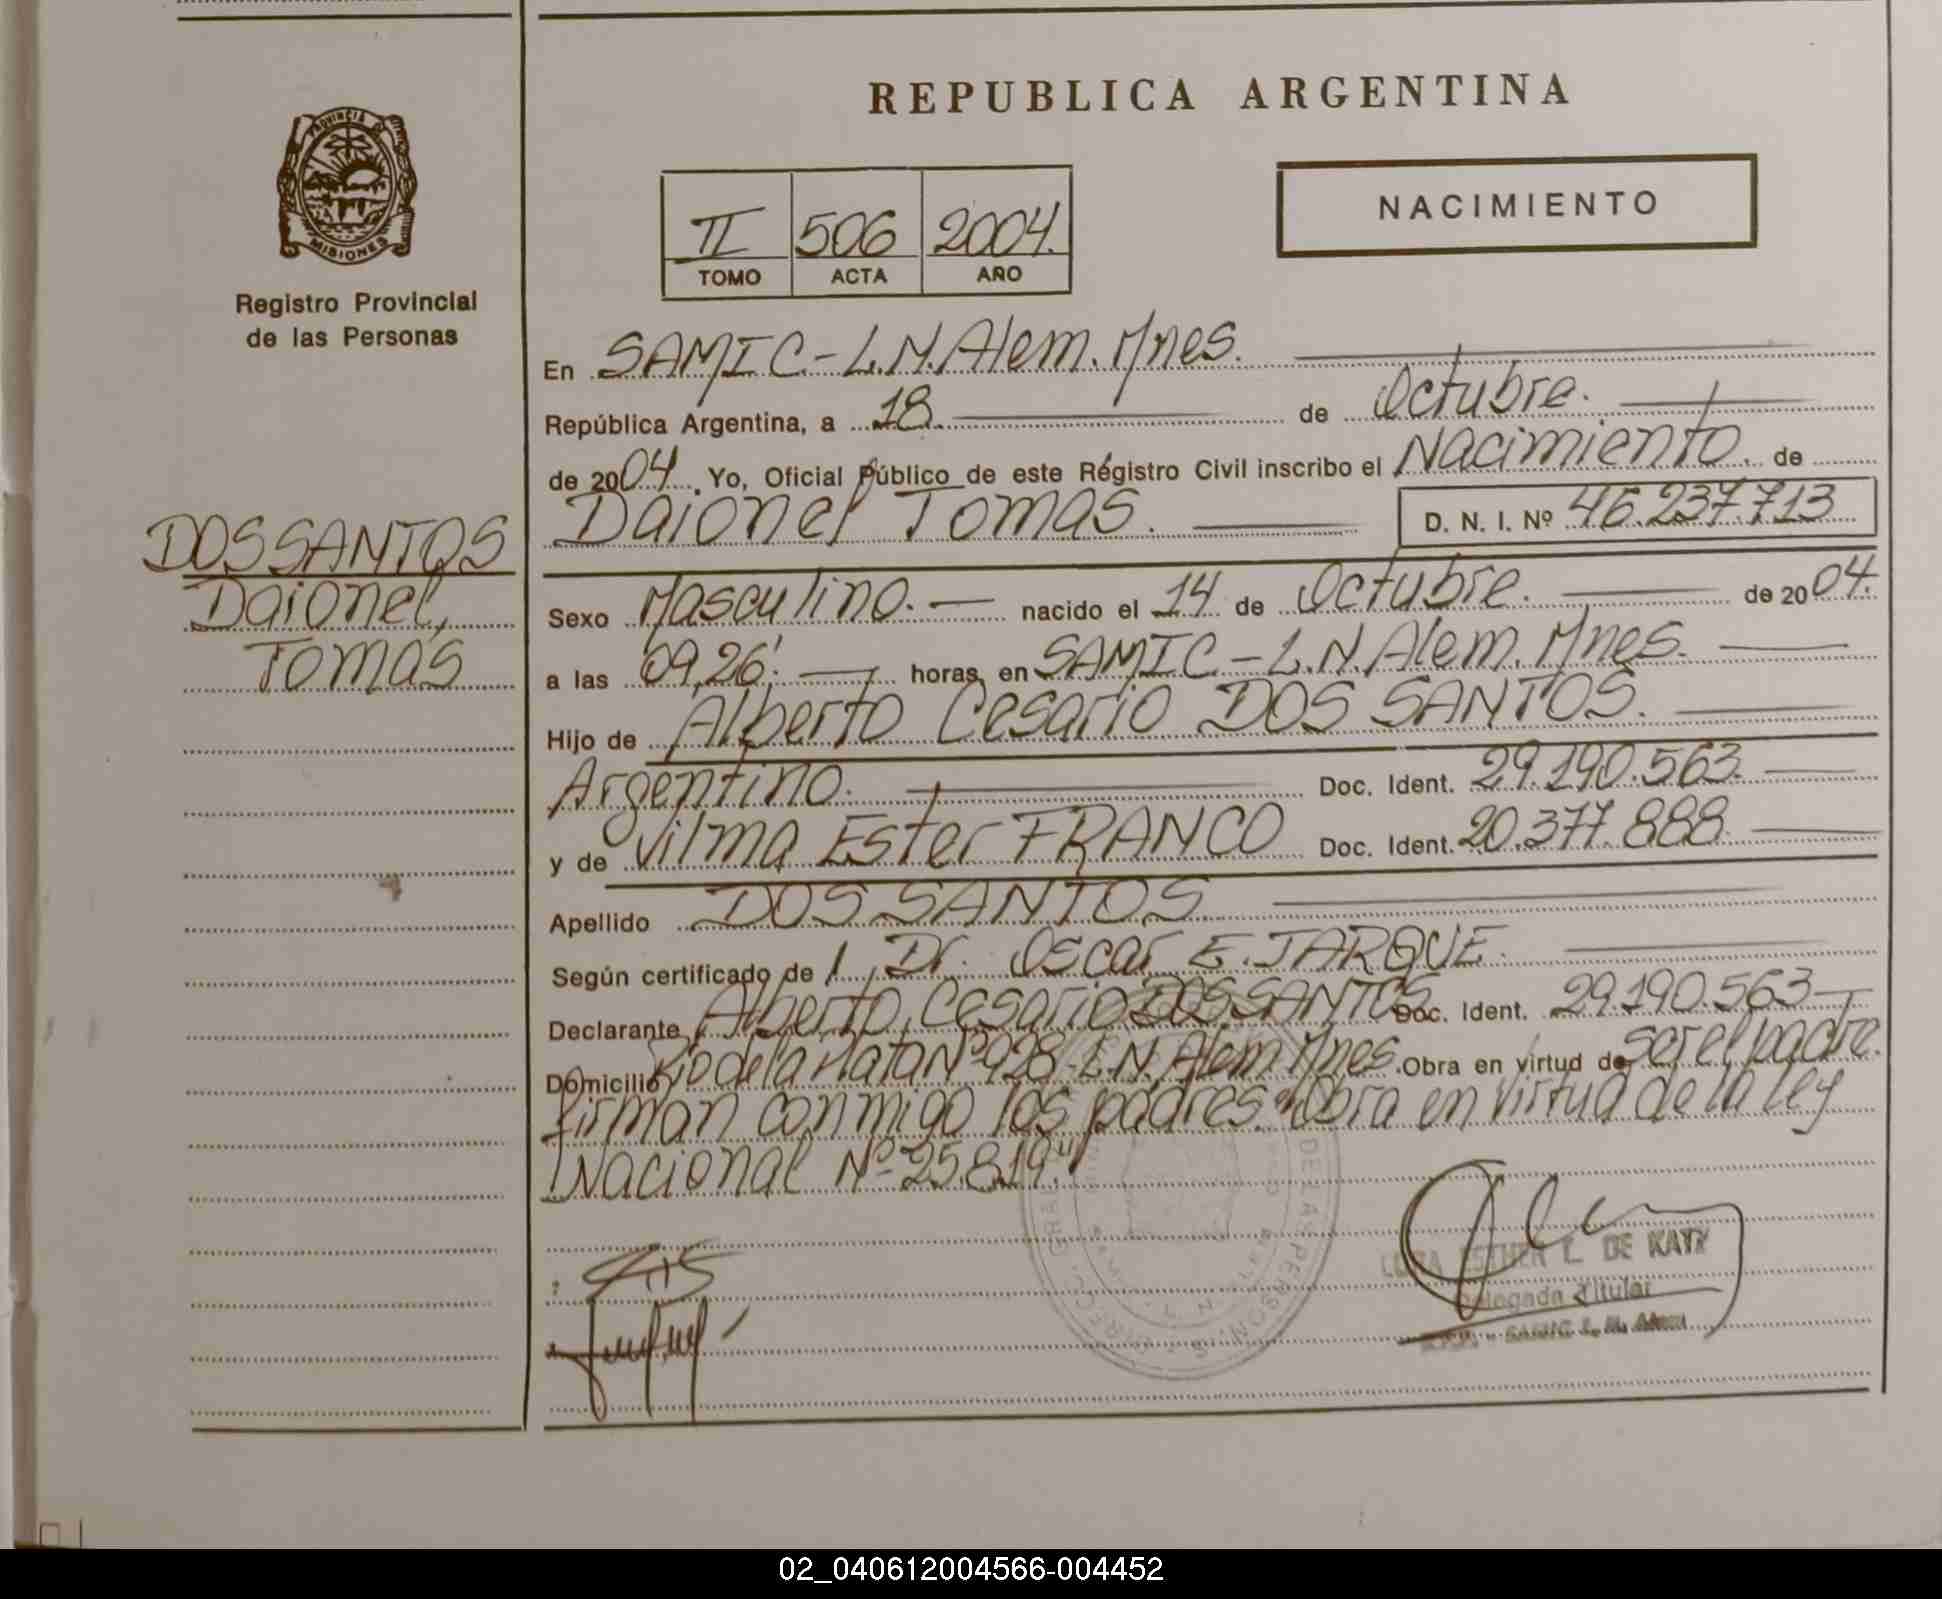 REPUBLICA ARGENTINA
PROVINCIA DE
MISIONES
Registro Provincial
de las Personas
II 506 2004.
TOMO ACTA AÑO
NACIMIENTO
En SAMIC-L.N.Alem.Mnes.
República Argentina, a 18 de Octubre.
de 2004. Yo, Oficial Público de este Régistro Civil inscribo el Nacimiento. de
Daionel Tomas. D. N. I. Nº 46.237.713
DOS SANTOS
Daionel,
Tomas
Sexo Masculino. nacido el 14 de Octubre. de 2004.
a las 09,26'. horas, en SAMIC-L.N.Alem.Mnes.
Hijo de Alberto Cesario DOS SANTOS.
Argentino. Doc. Ident. 29.190.563.
y de Vilma Ester FRANCO Doc. Ident. 20.377.888
Apellido DOS SANTOS
Según certificado de Dr. Oscar E. JARQUE.
Declarante Alberto Cesario DOS SANTOS Doc. Ident. 29.190.563
Domicilio Rio de la Plata Nº 928-L.N.Alem Mnes. Obra en virtud de ser el padre.
firman conmigo los padres. "Obra en virtud de la ley
Nacional Nº 25.819."
ESTHER L. DE KATZ
Delegada Titular
SAMIC L. N. Alem
02_040612004566-004452